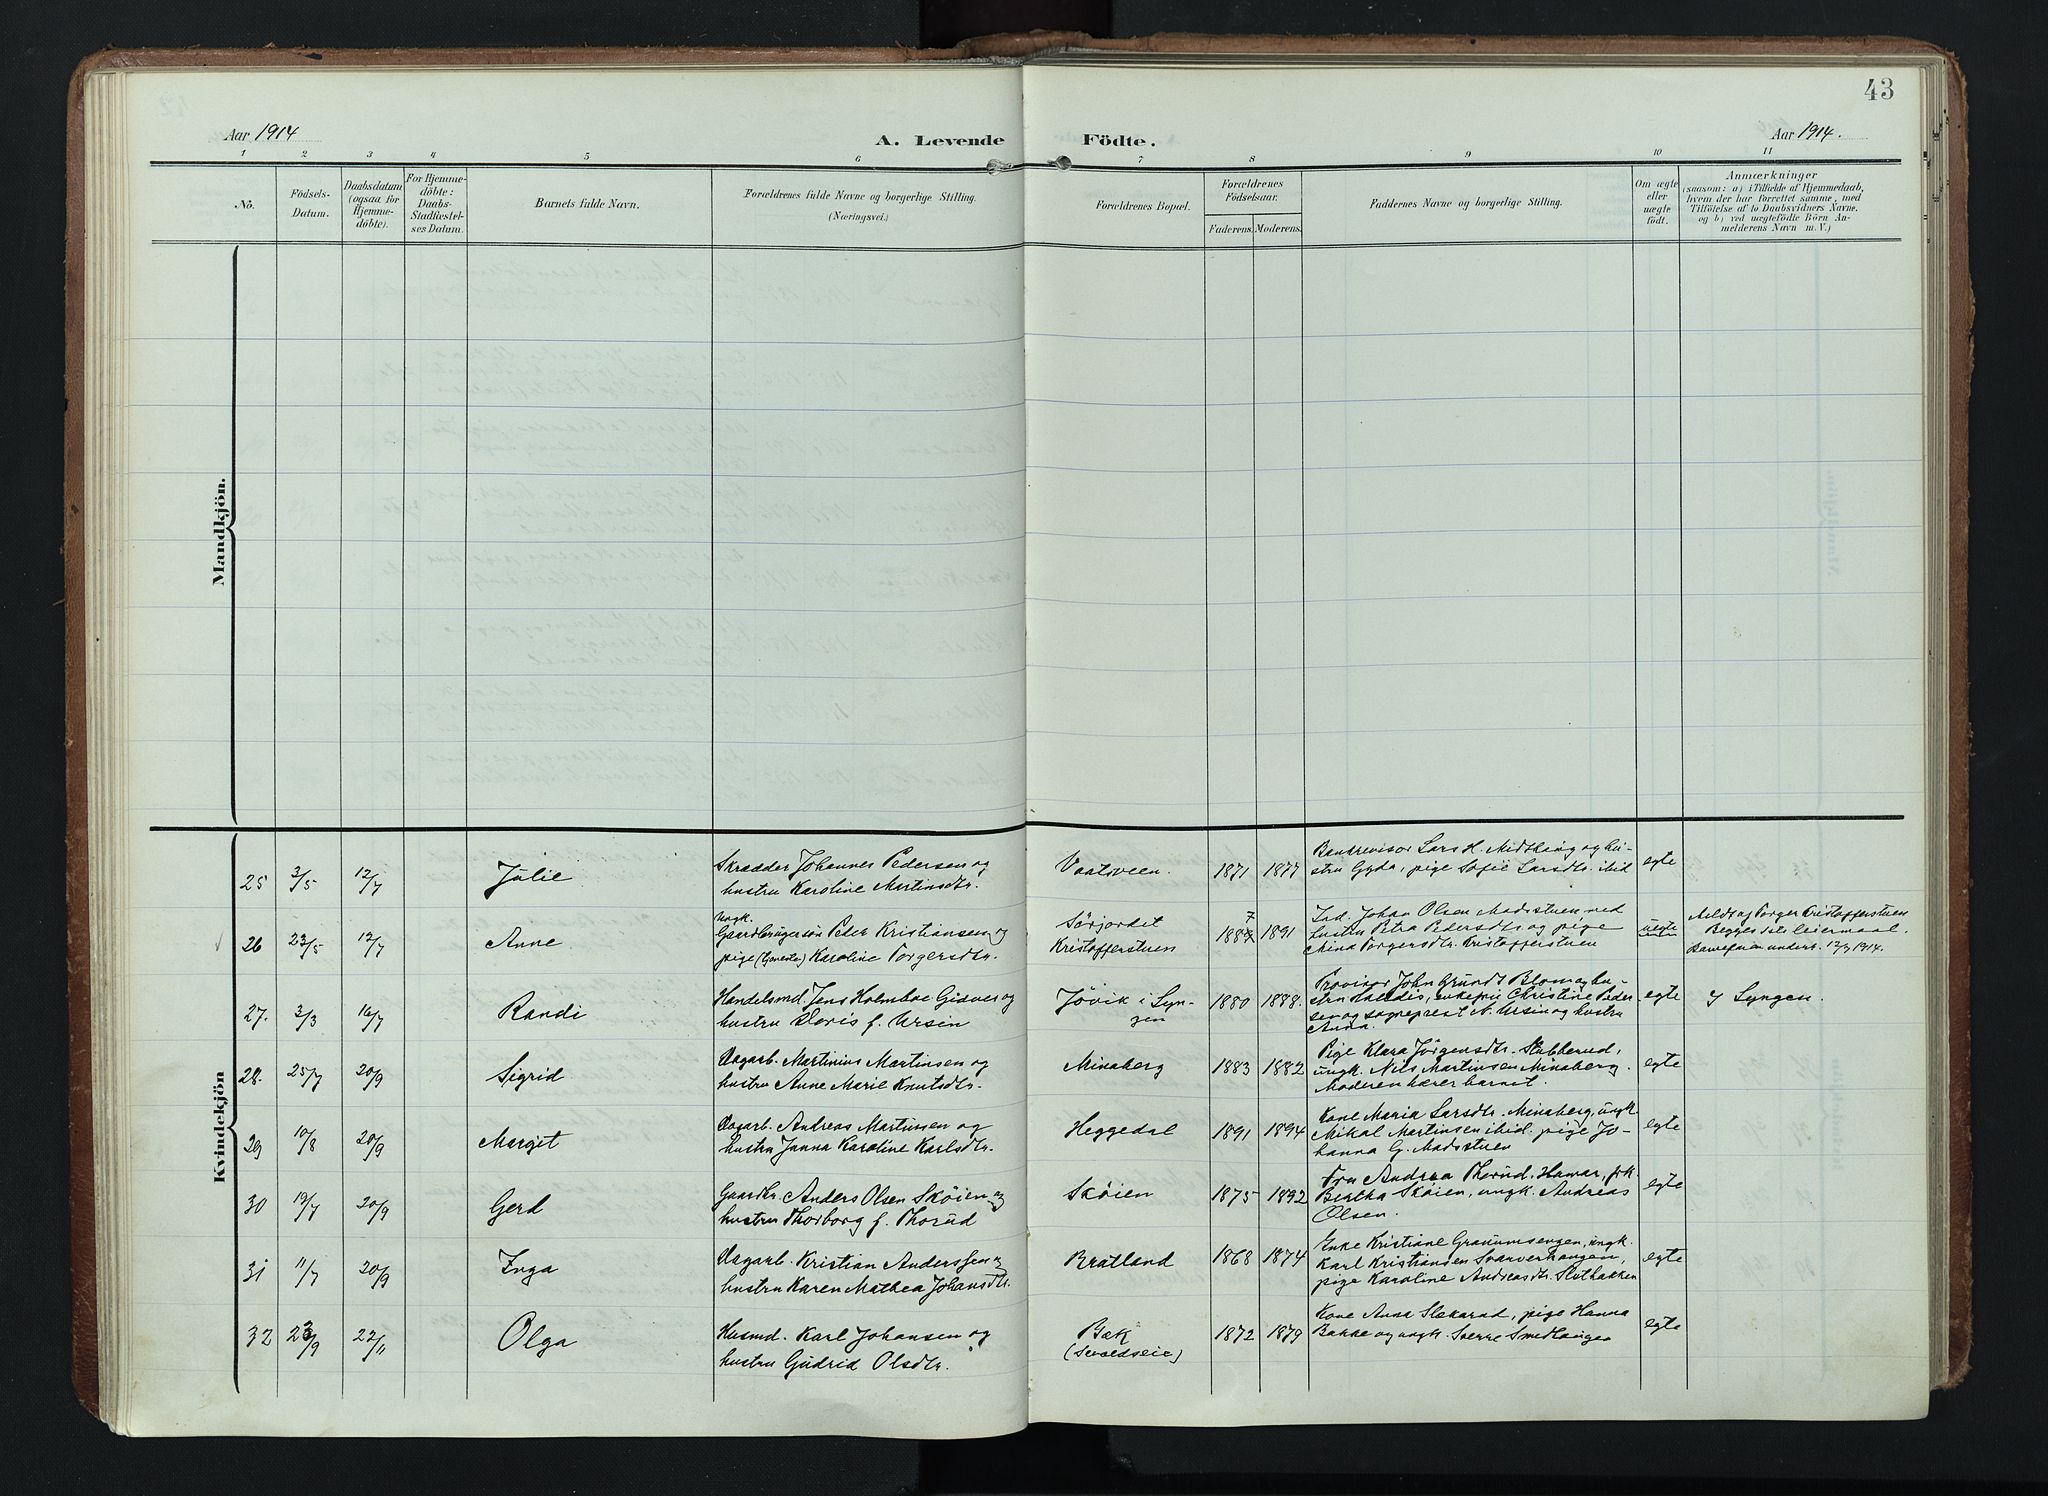 43
Aar 1914
A. Levende Födte.
Aar 1914.
1 2 3 4 5 6 7 8 9 10 11
No.
Födsels-
Datum.
Daabsdatum
(ogsaa for
Hjemme-
döbte).
For Hjemme-
döbte:
Daabs-
Stadfæstel-
ses Datum.
Barnets fulde Navn.
Forældrenes fulde Navne og borgerlige Stilling.
(Næringsvei.)
Forældrenes Bopæl.
Forældrenes
Födselsaar.
Faderens. Moderens.
Faddernes Navne og borgerlige Stilling.
Om ægte
eller
uægte
födt.
Anmærkninger
(saasom: a) i Tilfælde af Hjemmedaab,
hvem der har forrettet samme, med
Tilföielse af to Daabsvidners Navne.
og b) ved uægtefödte Börn An-
melderens Navn m. V.)
Mandkjön.
Kvindekjön
25 3/5 12/7 Julie
Skrædder Johannes Pedersen og
hustru Karoline Martinsdtr.
Vaatsveen. 1871 1877
Lars H. Midtling og hu-
stru Gyda, pige Sofie Larsdtr. ibid
egte
26 23/5 12/7 Anne
Ungk.
Gaardbrugersøn Peter Kristiansen og
pige (tjeneste) Karoline Torgersdtr.
Sørjordet
Kristofferstuen
1887 1891
Ind. Johan Olsen Madsstuen, med
hustru Petra Pedersdtr og pige
Mina Torgersdtr. Kristofferstuen
uegte
Meldt af Torger Kristofferstuen
Begges 1ste leiermaal.
12/7 1914.
27. 3/3 16/7 Randi
Handelsmd. Jens Holmboe Gidves og
hustru Doris f. Ursin
Jøvik i Lyn-
gen
1880 1888.
Provisor John Grundt Blom og hu-
stru Valdis, enkefru Christine Peder-
sen og sogneprest N. Ursin og hustru
Anna.
egte
i Lyngen.
28. 25/7 20/9 Sigrid
Dagarb. Martinius Martinsen og
hustru Anne Marie Knutsdtr.
Minaberg 1883 1882
Pige Klara Jørgensdtr. Stubberud,
ungk. Nils Martinsen Minaberg.
Moderen bærer barnet.
egte
29 10/8 20/9 Margit
Dagarb. Andreas Martinsen og
hustru Janna Karoline Karlsdtr.
Heggedal 1891 1894
Kone Maria Larsdtr. Minaberg, ungk.
Mikal Martinsen ibid. pige Jo-
hanna G. Madsstuen
egte
30 19/7 20/9 Gerd
Gaardbr. Anders Olsen Skøien og
hustru Thorborg f. Thorud
Skøien 1875 1892
Fru Andrea Thorud, Hamar, frk.
Bertha Skøien, ungk. Andreas
Olsen.
egte
31 11/7 20/9 Inga
Dagarb. Kristian Anderssen og
hustru Karen Mathea Johansdtr.
Bratland 1868 1874
Enke Kristiane Granumsengen, ungk.
Karl Kristiansen Svarverhaugen,
pige Karoline Andreasdtr. Slotbakken
egte
32 23/9 22/11 Olga
Husmd. Karl Johansen og
hustru Gudrid Olsdtr.
Bæk
(Sevaldseie)
1872 1879
Kone Anna Slekarud, pige Hanna
Bakke og ungk. Sverre Smedhaugen
egte